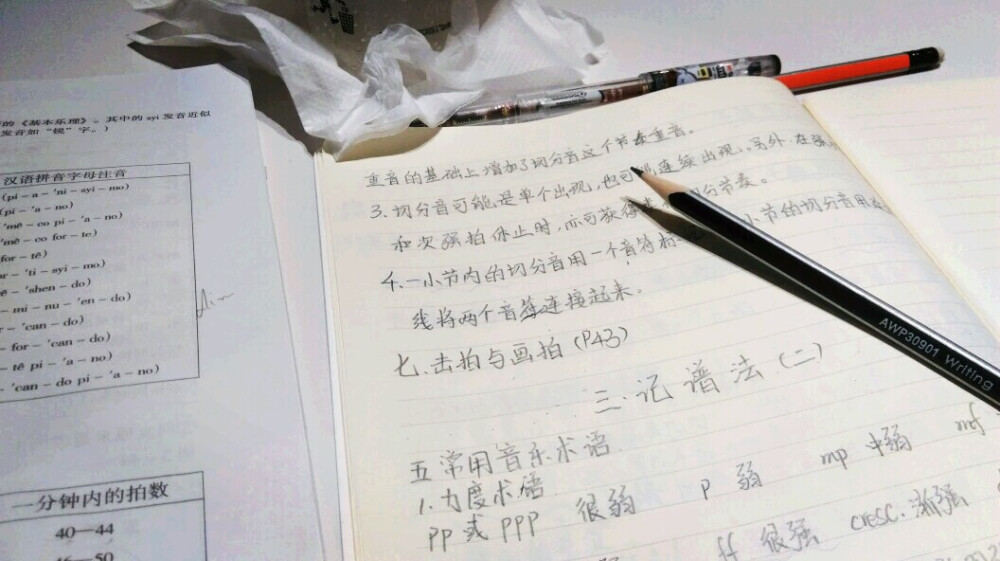 的《基本乐理》。其中的 syi 发音近似
发音如“锐”字。)
汉语拼音字母注音
(pi－a－'ni－syi－mo)
(pi－'a－no)
'mê－co pi－'a－no)
'mê－co for－te)
for－tê)
－'ti－syi－mo)
－'shen－do)
－mi－nu－'en－do)
－'can－do)
for－'can－do)
－tê pi－'a－no)
'can－do pi－'a－no)
dim
一分钟内的拍数
40—44
46—50
重音的基础上增加了切分音这个节奏重音。
3. 切分音可能是单个出现,也可 连续出现。另外,在强
和次强拍休止时,亦可获得 切分节奏。
4. 一小节内的切分音用一个音符标 小节的切分音用
线将两个音符连接起来。
七.击拍与画拍(P43)
三.记谱法(二)
五 常用音乐术语
1.力度术语
PP 或 PPP 很弱 P 弱 mp 中弱 mf
ff 很强 cresc. 渐强
AWP30901 Writing